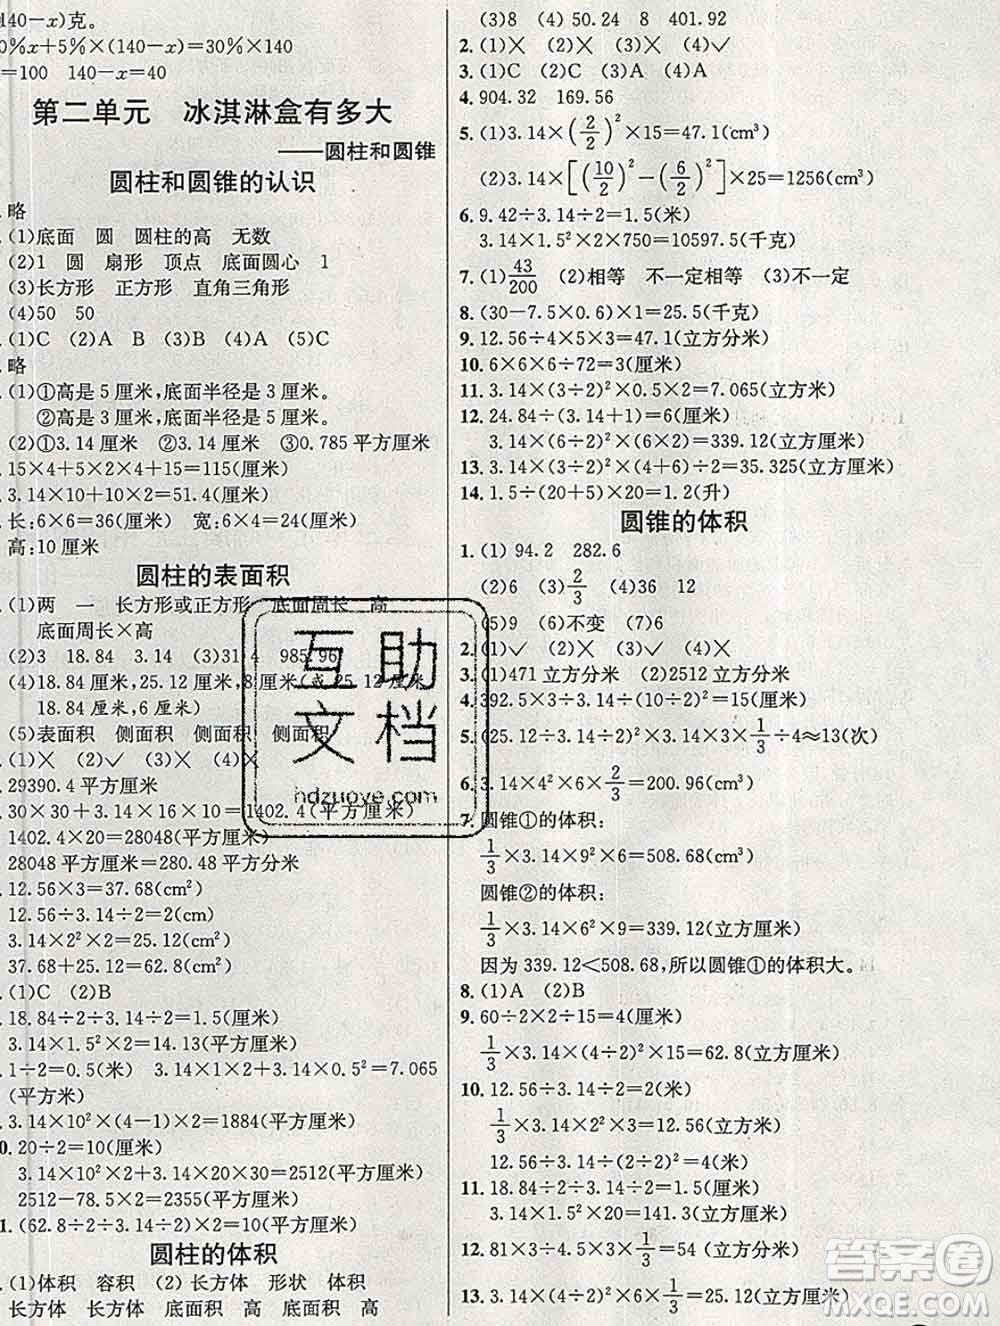 140－x)克。
0%x＋5%×(140－x)＝30%×140
＝100　140－x＝40
第二单元　冰淇淋盒有多大
——圆柱和圆锥
圆柱和圆锥的认识
.略
.(1)底面　圆　圆柱的高　无数
(2)1　圆　扇形　顶点　底面圆心　1
(3)长方形　正方形　直角三角形
(4)50　50
.(1)C　(2)A　B　(3)B　(4)A　(5)C
.略
.(1)①高是5厘米,底面半径是3厘米。
②高是3厘米,底面半径是5厘米。
(2)①3.14厘米　②3.14厘米　③0.785平方厘米
.15×4＋5×2＋15×2＝115(厘米)
.3.14×10＋10×2＝51.4(厘米)
.长:6×6＝36(厘米)　宽:6×4＝24(厘米)
高:10厘米
圆柱的表面积
.(1)两　一　长方形或正方形　底面周长　高
底面周长×高
(2)3　18.84　3.14　(3)31.4　985.96
(4)18.84厘米,25.12厘米,8厘米(或25.12厘米
18.84厘米,6厘米)
(5)表面积　侧面积　侧面积　侧面积
.(1)×　(2)✓　(3)×　(4)×
.29390.4平方厘米
.30×30＋3.14×16×10＝1402.4(平方厘米)
1402.4×20＝28048(平方厘米)
28048平方厘米＝280.48平方分米
.12.56×3＝37.68(cm²)
12.56÷3.14÷2＝2(cm)
3.14×2²×2＝25.12(cm²)
37.68＋25.12＝62.8(cm²)
.(1)C　(2)B
.18.84÷2÷3.14÷2＝1.5(厘米)
3.14×1.5²×2＝14.13(平方厘米)
.1÷2＝0.5(米)　3.14×1×2＋3.14×0.5²＝7.065
(平方米)
.3.14×10²×(4－1)×2＝1884(平方厘米)
0.20÷2＝10(厘米)
3.14×10²×2＋3.14×20×30＝2512(平方厘米)
2512－78.5×2＝2355(平方厘米)
1.(62.8÷2÷3.14÷2)×2＝10(平方厘米)
圆柱的体积
.(1)体积　容积　(2)长方体　形状　体积
长方体　长方体　底面积　高　底面积　高
(3)8　(4)50.24　8　401.92
2.(1)×　(2)×　(3)×　(4)✓
3.(1)C　(2)C　(3)A　(4)A
4.904.32　169.56
5.(1)3.14×(2/2)²×15＝47.1(cm³)
(2)3.14×[(10/2)²－(6/2)²]×25＝1256(cm³)
6.9.42÷3.14÷2＝1.5(米)
3.14×1.5²×2×750＝10597.5(千克)
7.(1)43/200　(2)相等　不一定相等　(3)不一定
8.(30－7.5×0.6)×1＝25.5(千克)
9.12.56÷4×5×3＝47.1(立方分米)
10.6×6×6÷72＝3(厘米)
11.3.14×(3÷2)²×0.5×2＝7.065(立方米)
12.24.84÷(3.14＋1)＝6(厘米)
3.14×(6÷2)²×(6×2)＝339.12(立方厘米)
13.3.14×(3÷2)²×(4＋6)÷2＝35.325(立方厘米)
14.1.5÷(20＋5)×20＝1.2(升)
圆锥的体积
1.(1)94.2　282.6
(2)6　(3)2/3　(4)36　12
(5)9　(6)不变　(7)6
2.(1)✓　(2)×　(3)✓　(4)×
3.(1)471立方分米　(2)2512立方厘米
4.392.5×3÷3.14÷(10÷2)²＝15(厘米)
5.(25.12÷3.14÷2)²×3.14×3×1/3÷4≈13(次)
6.3.14×4²×6×2/3＝200.96(cm³)
7.圆锥①的体积:
1/3×3.14×9²×6＝508.68(cm³)
圆锥②的体积:
1/3×3.14×6²×9＝339.12(立方厘米)
因为339.12＜508.68,所以圆锥①的体积大。
8.(1)A　(2)B
9.60÷2×2÷15＝4(厘米)
1/3×3.14×(4÷2)²×15＝62.8(立方厘米)
10.12.56÷3.14÷2＝2(米)
1/3×3.14×2²×3＝12.56(立方米)
12.56÷3.14÷(2÷2)²＝4(米)
11.18.84÷2÷3.14÷2＝1.5(厘米)
3.14×1.5²×20＝141.3(立方厘米)
12.81×3－81×3×1/3÷3＝54(立方分米)
13.3.14×(4÷2)²×6×1/3＝25.12(立方厘米)
互助
文档
hdzuoye.com
答案圈
MXQE.COM